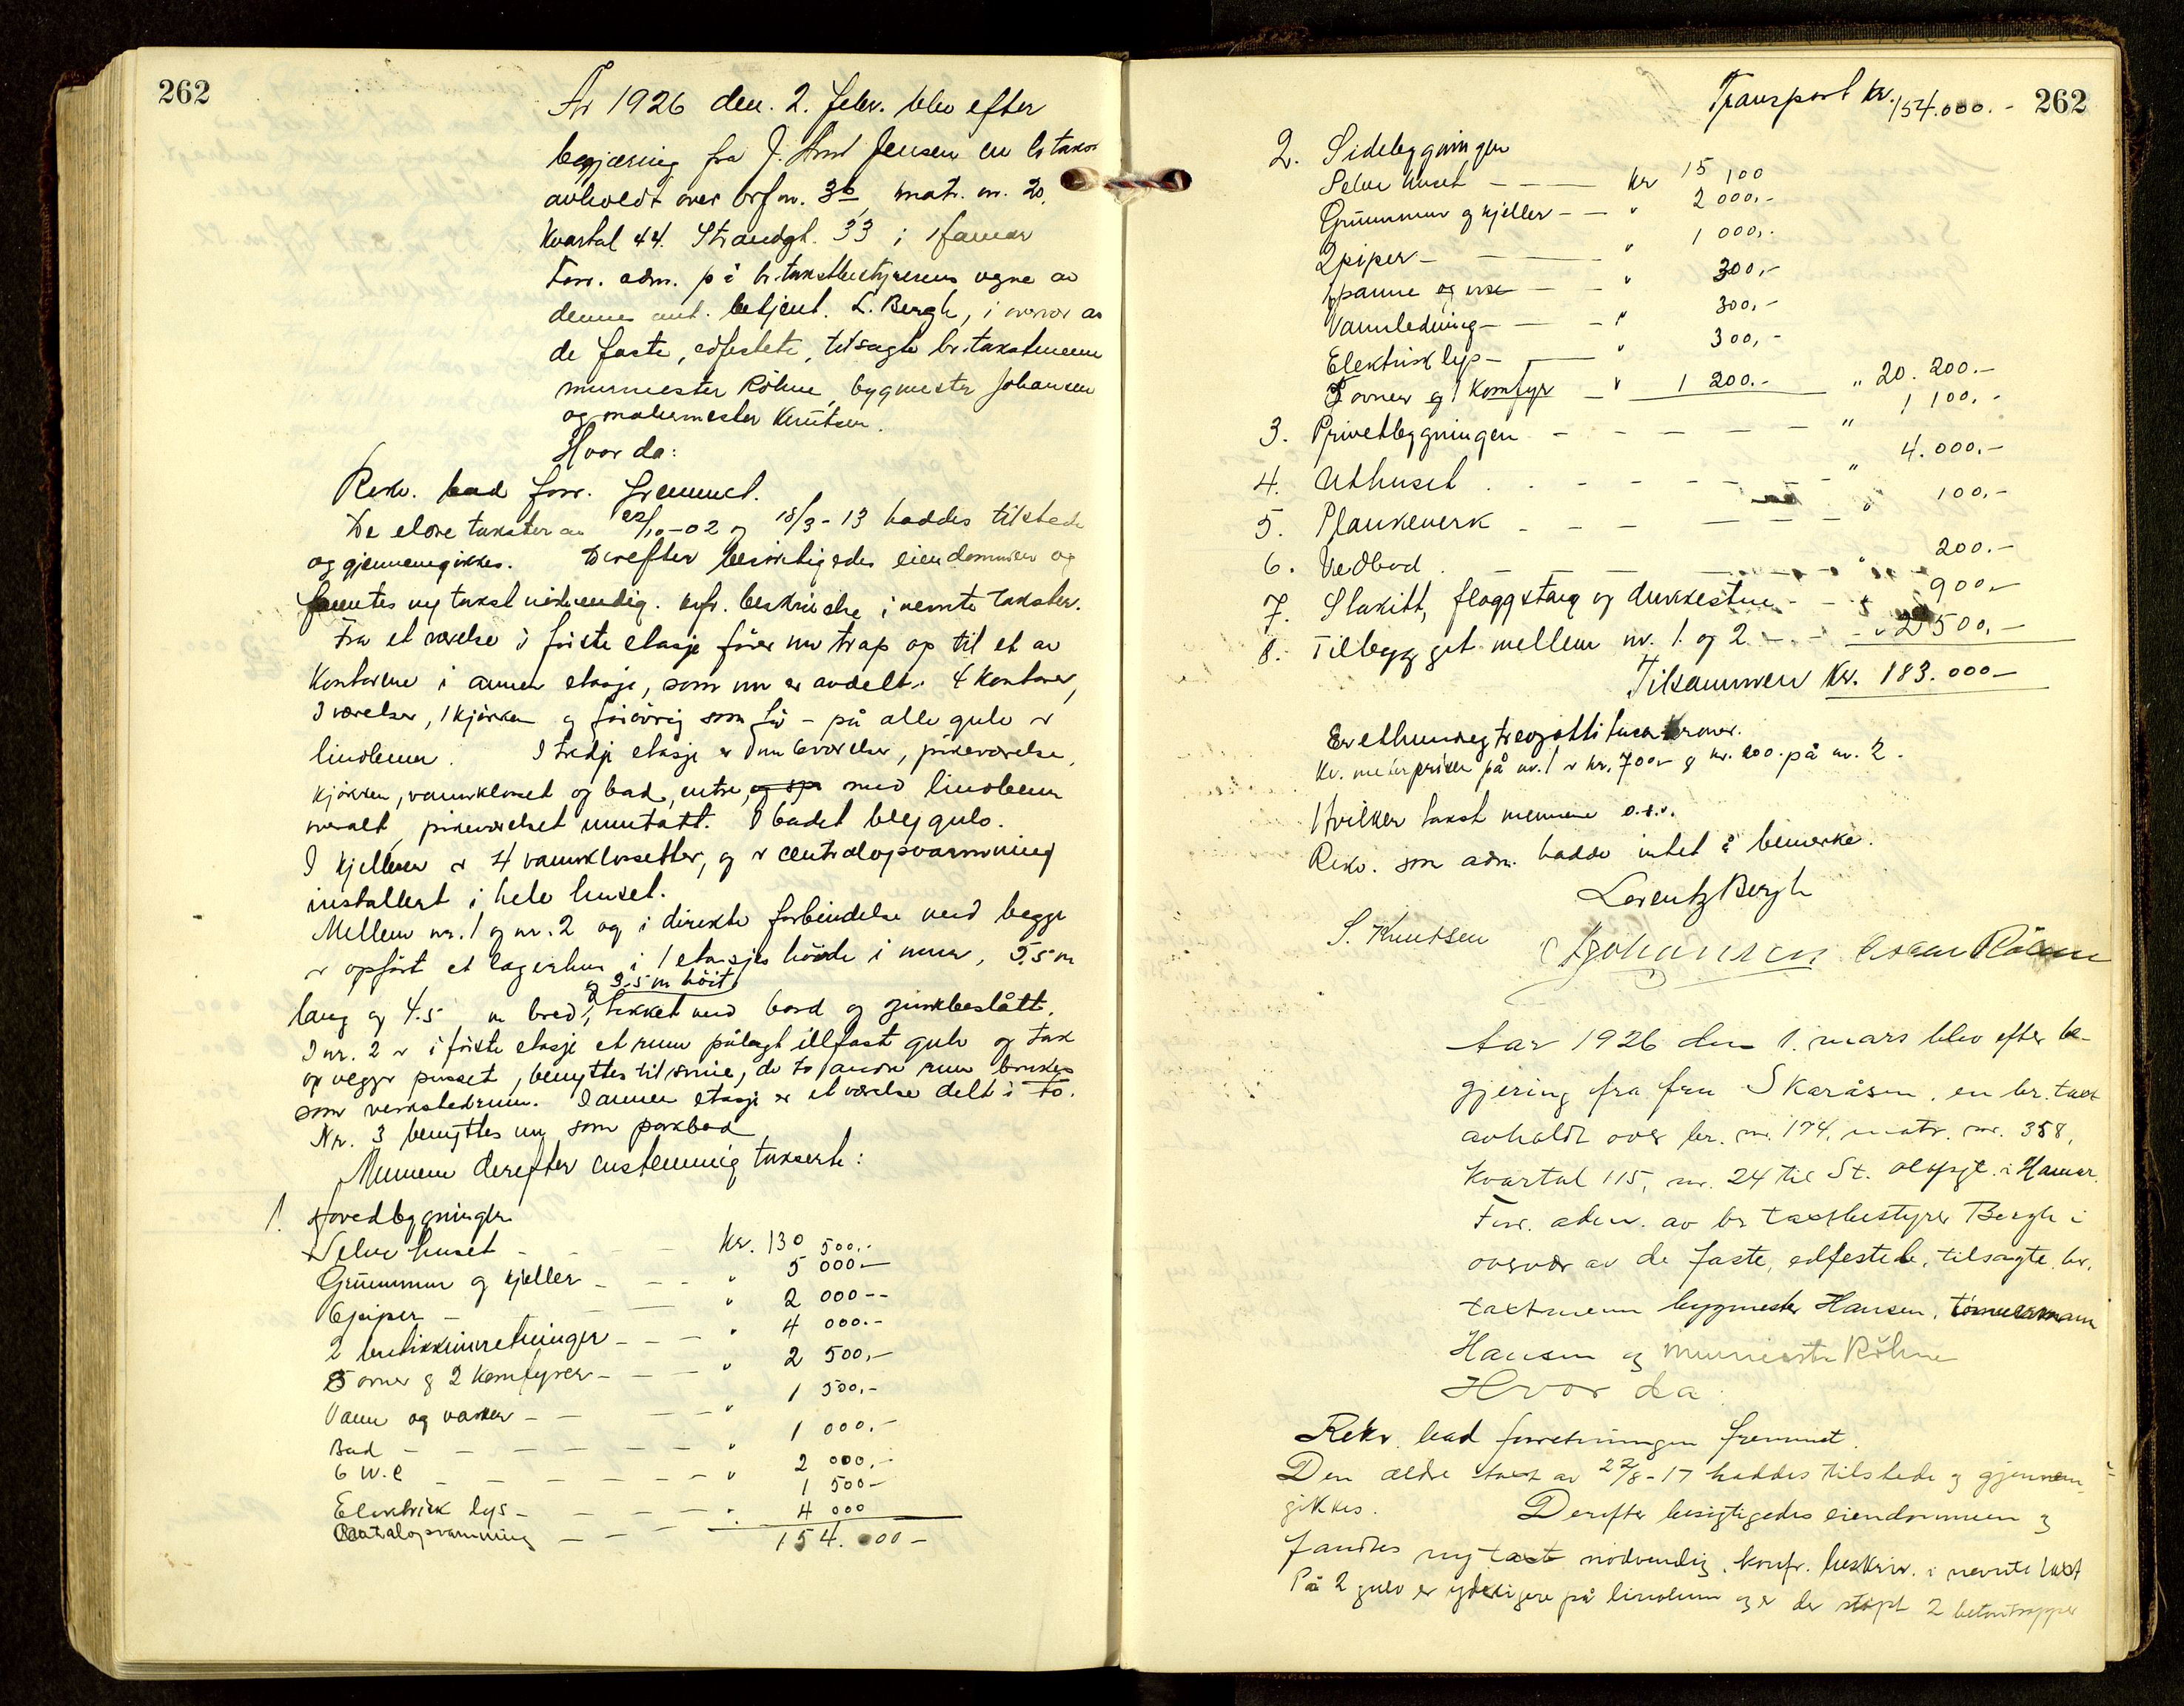 262
År 1926 den. 2. febr. blev efter
begjæring fra J. Jensen en br takst
avholdt over brf nr. 3b, matr. nr. 20.
Kvartal 44. Strandgt. 33 i Hamar
Forr. adm. på br. takstbestyrerens vegne av
dennes aut. betjent. L. Bergh, i overvær av
de faste, edfestete, tilsagte br. takstmenn
murmester Röhne, bygmester Johansen
og malermester Knutsen.
Hvor da:
Rekv. bad forr. fremmet.
De eldre takster av 22/10-02 og 18/3-13 haddes tilstede
og gjennemgikkes. Derefter besiktigedes eiendommen og
fantes ny takst nödvendig. Kfr. beskrivelse i nevnte takster.
Fra et værelse i förste etasje förer nu trap op til et av
Kontorene i annen etasje, som nu er avdelt i 4 kontorer,
3 værelser, 1 kjökken og forövrig som för - på alle gulv er
linoleum. I tredje etasje er nu 6 værelser, pikeværelse,
kjökken, vannkloset og bad, entre, og sp med linoleum
overalt, pikeværelset unntatt. I badet blygulv.
I kjelleren er 4 vannklosetter, og er centralopvarmning
installert i hele huset.
Mellem nr. 1 og nr. 2 og i direkte forbindelse med begge
er opfört et lagerhus i 1 etasjes höide i mur, 5,5 m
og 3.5 m höit
lang og 4.5 m bred, tekket med bord og zinkbeslått.
I nr. 2 er i förste etasje et rum pålagt illfast gulv og tak
og vegger pusset, benyttes til smie, de to andre rum brukes
som verkstedrum. I annen etasje er et værelse delt i to.
Nr. 3 benyttes nu som pakbod
Mennene derefter enstemmig takserte:
1. Hovedbygningen
Selve huset - - - - kr. 130 500.-
Grunnmur og kjeller - - - " 5 000.-
6 piper - - - " 2 000--
2 butikkinnretninger - - - " 4 000.-
5 ovner og 2 komfyrer - - - " 2 500,-
Vann og vasker - - - " 1 500.-
Bad - - - - - - " 1 000.-
6 W.C - - - - - - " 2 000.-
Elektrisk lys - - - - " 1 500-
Centralopvarmning - - - 4 000
154.000-
Transport kr. 154.000.- 262
2. Sidebygningen
Selve huset - - - kr 15 100
Grunnmur og kjeller - - " 2 000,-
2 piper - - - " 1 000,-
1 panne og vask - - " 300,-
Vannledning - - " 300,-
Elektrisk lys - - " 300,-
5 ovner og 1 komfyr - " 1 200.- " 20.200.-
3. Privetbygningen - - - - - " 1 100,-
4. Uthuset - - - - - - " 4.000,-
5. Plankeverk - - - - - - " 100,-
6. Vedbod - - - - - 200.-
7. Stakitt, flaggstang og dukkestue - - " 900,-
8. Tilbygget mellem nr. 1 og 2 - - - " 2 500,-
Tilsammen kr. 183.000-
Er etthundreogtreogåtti tusen kroner.
Kv. meterprisen på nr. 1 er kr. 700- og kr. 200. på nr. 2.
Hvilken takst mennene o.s.v.
Rekv. som adm. hadde intet å bemerke.
Lorentz Bergh
S. Knutsen Johansen Oscar Röhne
Aar 1926 den 1. mars blev efter be-
gjering fra fru Skaråsen, en br. takst
avholdt over br. nr. 174, matr. nr. 358,
Kvartal 115, nr. 24 til St. olafsgt. i Hamar.
Forr. adm. av br taxtbestyrer Bergh i
overvær av de faste, edfestede, tilsagte br.
taxtmenn bygmester Hansen, tömmermann
Hansen og murmester Röhne
Hvor da
Rekv. bad forretningen fremmet.
Den eldre taxt av 22/8-17 haddes tilstede og gjennem-
gikkes. Derefter besigtigedes eiendommen og
fandtes ny taxt nödvendig. konfr. beskriv. i nevnte taxt
På 2 gulv er yderligere på linoleum og er der stöpt 2 betontrapper